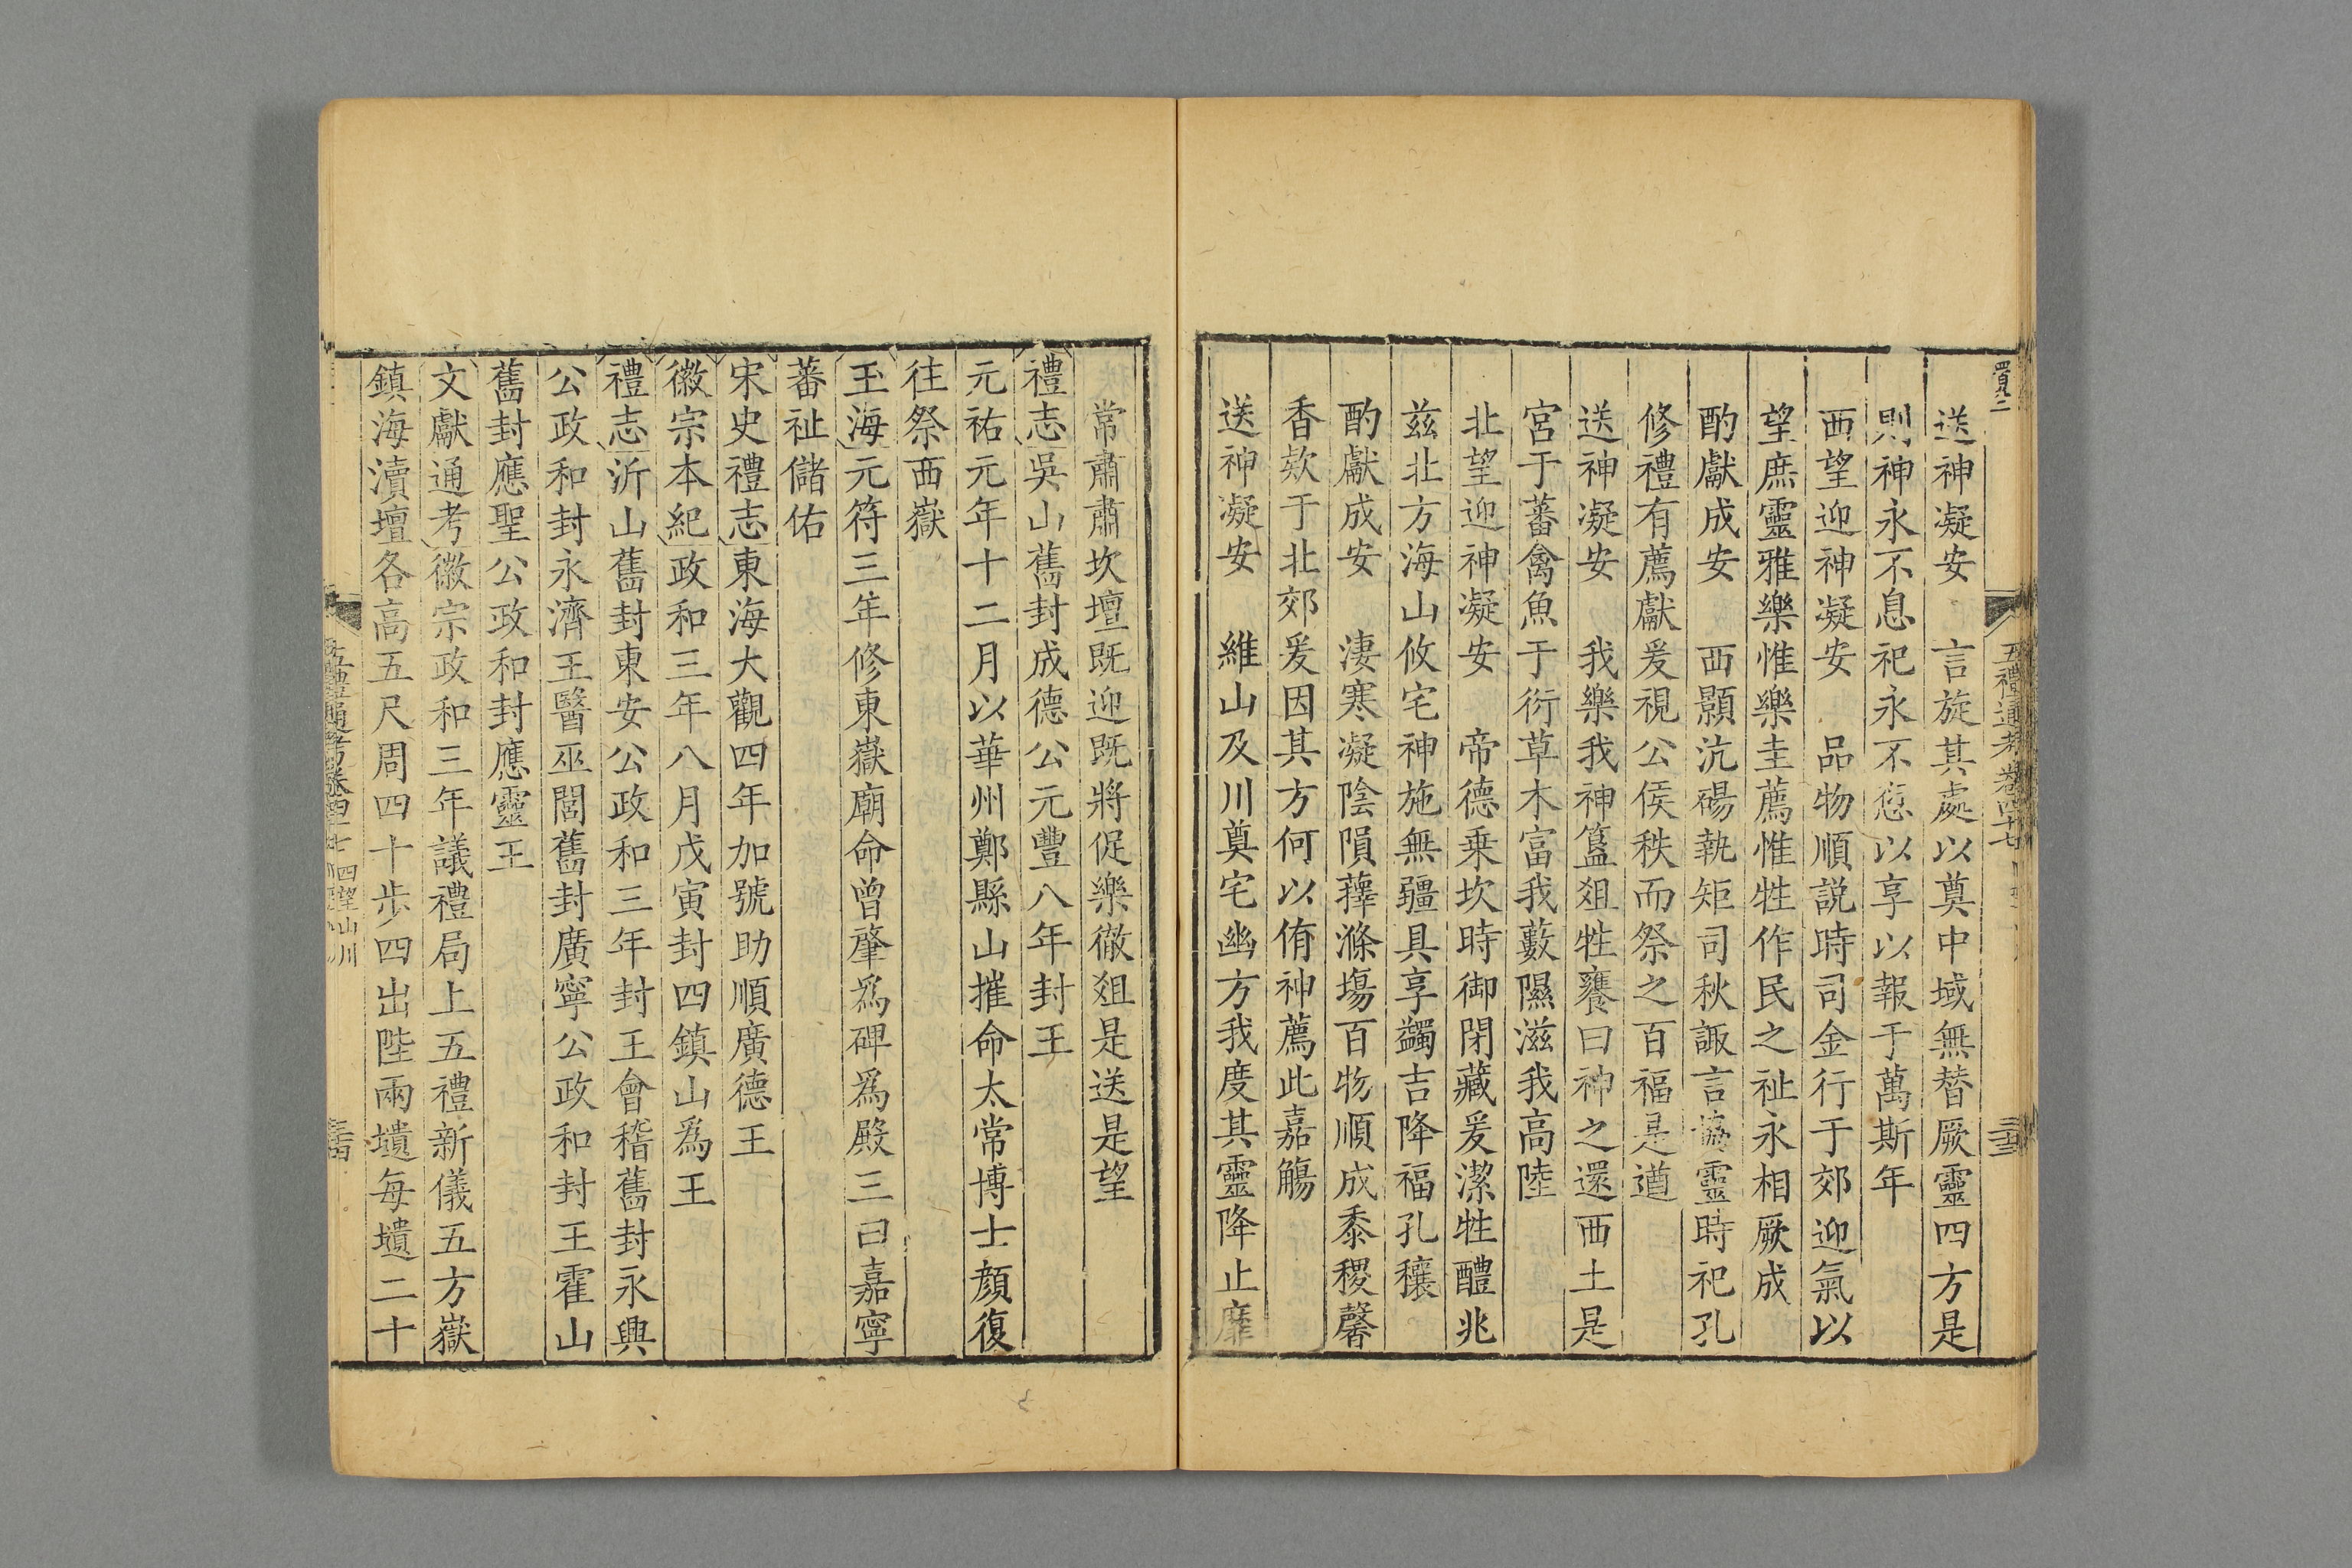 五禮通考卷四十七
三三
送神凝安　言旋其處以奠中域無替厥靈四方是
則神永不息祀永不愆以享以報于萬斯年
西望迎神凝安　品物順説時司金行于郊迎氣以
望庶靈雅樂惟樂圭薦惟牲作民之祉永相厥成
酌獻成安　西顥沆碭執矩司秋諏言協靈時祀孔
修禮有薦獻爰視公侯秩而祭之百福是遒
送神凝安　我樂我神簋俎牲饔曰神之還西土是
宮于蕃禽魚于衍草木富我藪隰滋我高陸
北望迎神凝安　帝德乗坎時御閉藏爰潔牲醴兆
兹北方海山攸宅神施無疆具享蠲吉降福孔穰
酌獻成安　淒寒凝陰隕蘀滌塲百物順成黍稷馨
香欬于北郊爰因其方何以侑神薦此嘉觴
送神凝安　維山及川奠宅幽方我度其靈降止靡
常肅肅坎壇既迎既將促樂徹俎是送是望
禮志吳山舊封成德公元豐八年封王
元祐元年十二月以華州鄭縣山摧命太常博士顔復
往祭西嶽
玉海元符三年修東嶽廟命曾肇爲碑爲殿三曰嘉寧
蕃祉儲佑
宋史禮志東海大觀四年加號助順廣德王
徽宗本紀政和三年八月戊寅封四鎮山爲王
禮志沂山舊封東安公政和三年封王會稽舊封永興
公政和封永濟王醫巫閭舊封廣寧公政和封王霍山
舊封應聖公政和封應靈王
文獻通考徽宗政和三年議禮局上五禮新儀五方嶽
鎮海瀆壇各高五尺周四十步四出陛兩壝每壝二十
五禮通考卷四十七　四望山川
三四